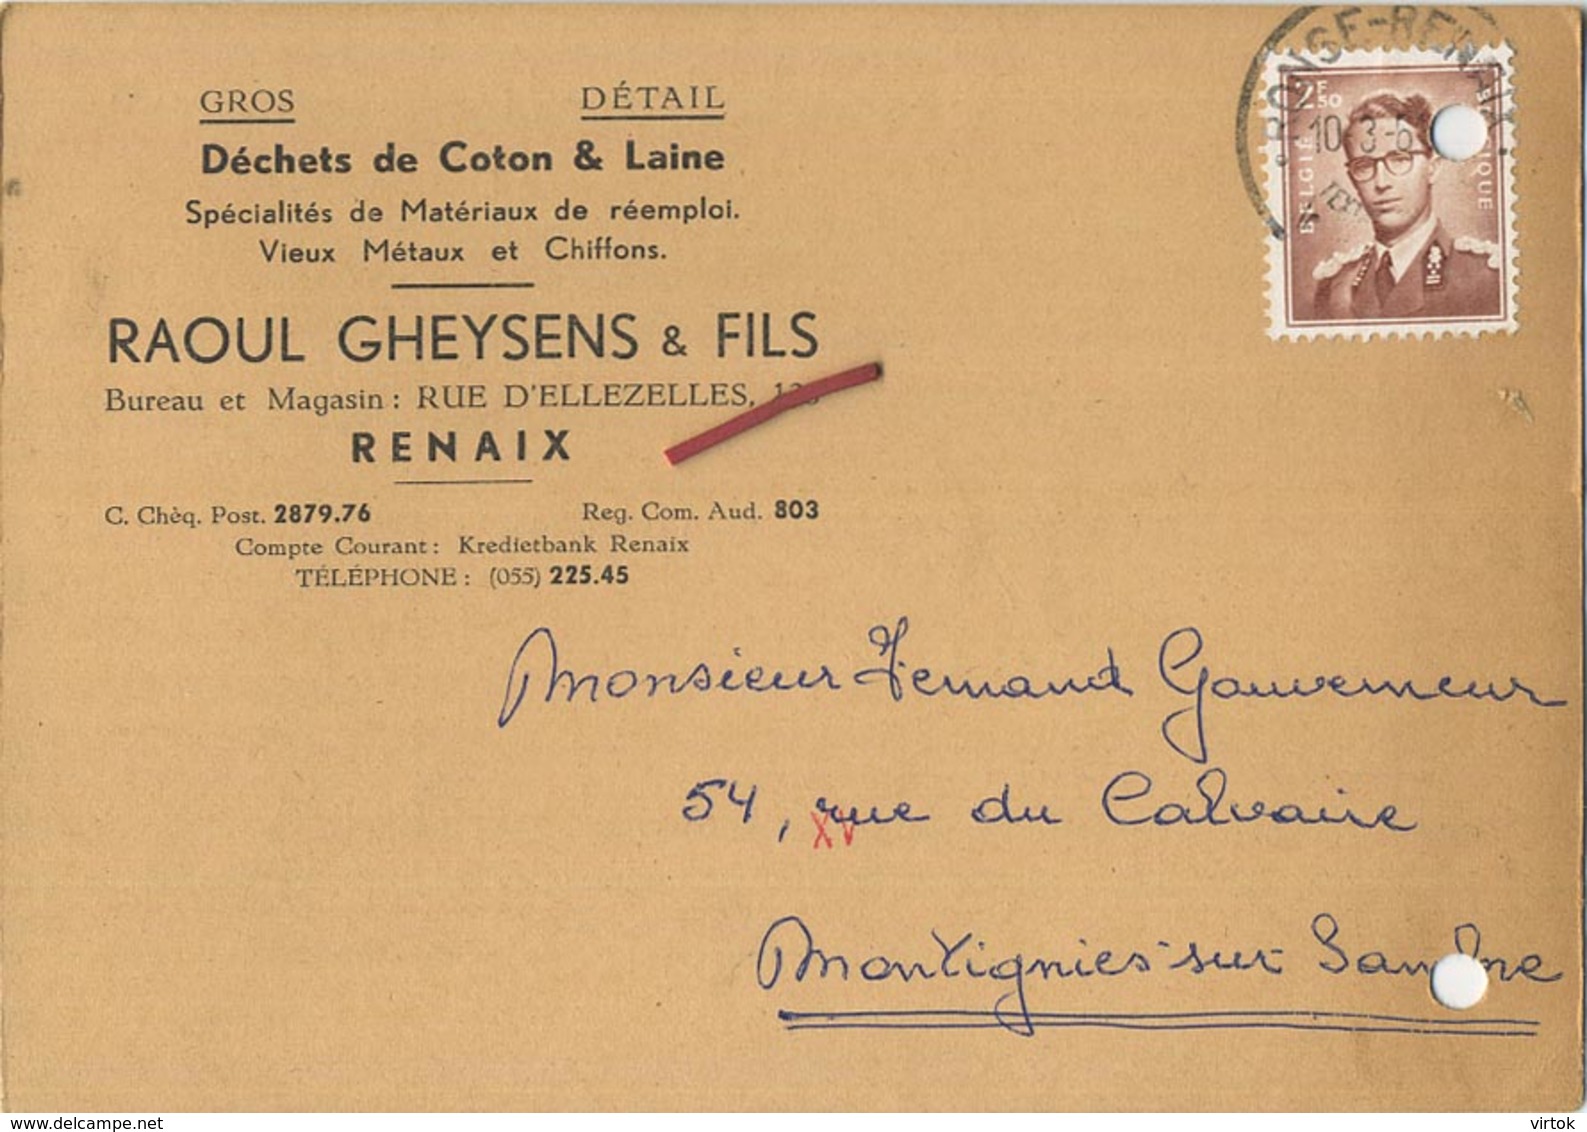 GROS DÉTAIL
Déchets de Coton & Laine
Spécialités de Matériaux de réemploi.
Vieux Métaux et Chiffons.
RAOUL GHEYSENS & FILS
Bureau et Magasin : RUE D'ELLEZELLES,
RENAIX
C. Chèq. Post. 2879.76 Reg. Com. Aud. 803
Compte Courant : Kredietbank Renaix
TÉLÉPHONE : (055) 225.45
RONSE-RENAIX
10-3-6
2F50
BELGIË
BELGIQUE
Monsieur Fernand Gouverneur
54, rue du Calvaire
XV
Montignies-sur-Sambre
www.delcampe.net
virtok